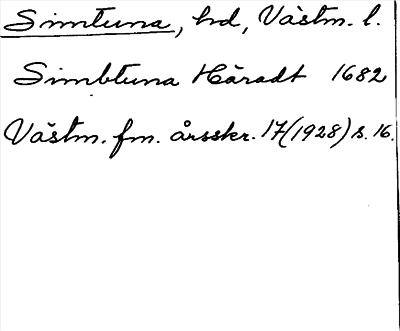 Simtuna, hd, Västm. l.
Simbtuna Häradt 1682
Västm. fm. årsskr. 17(1928) s. 16.